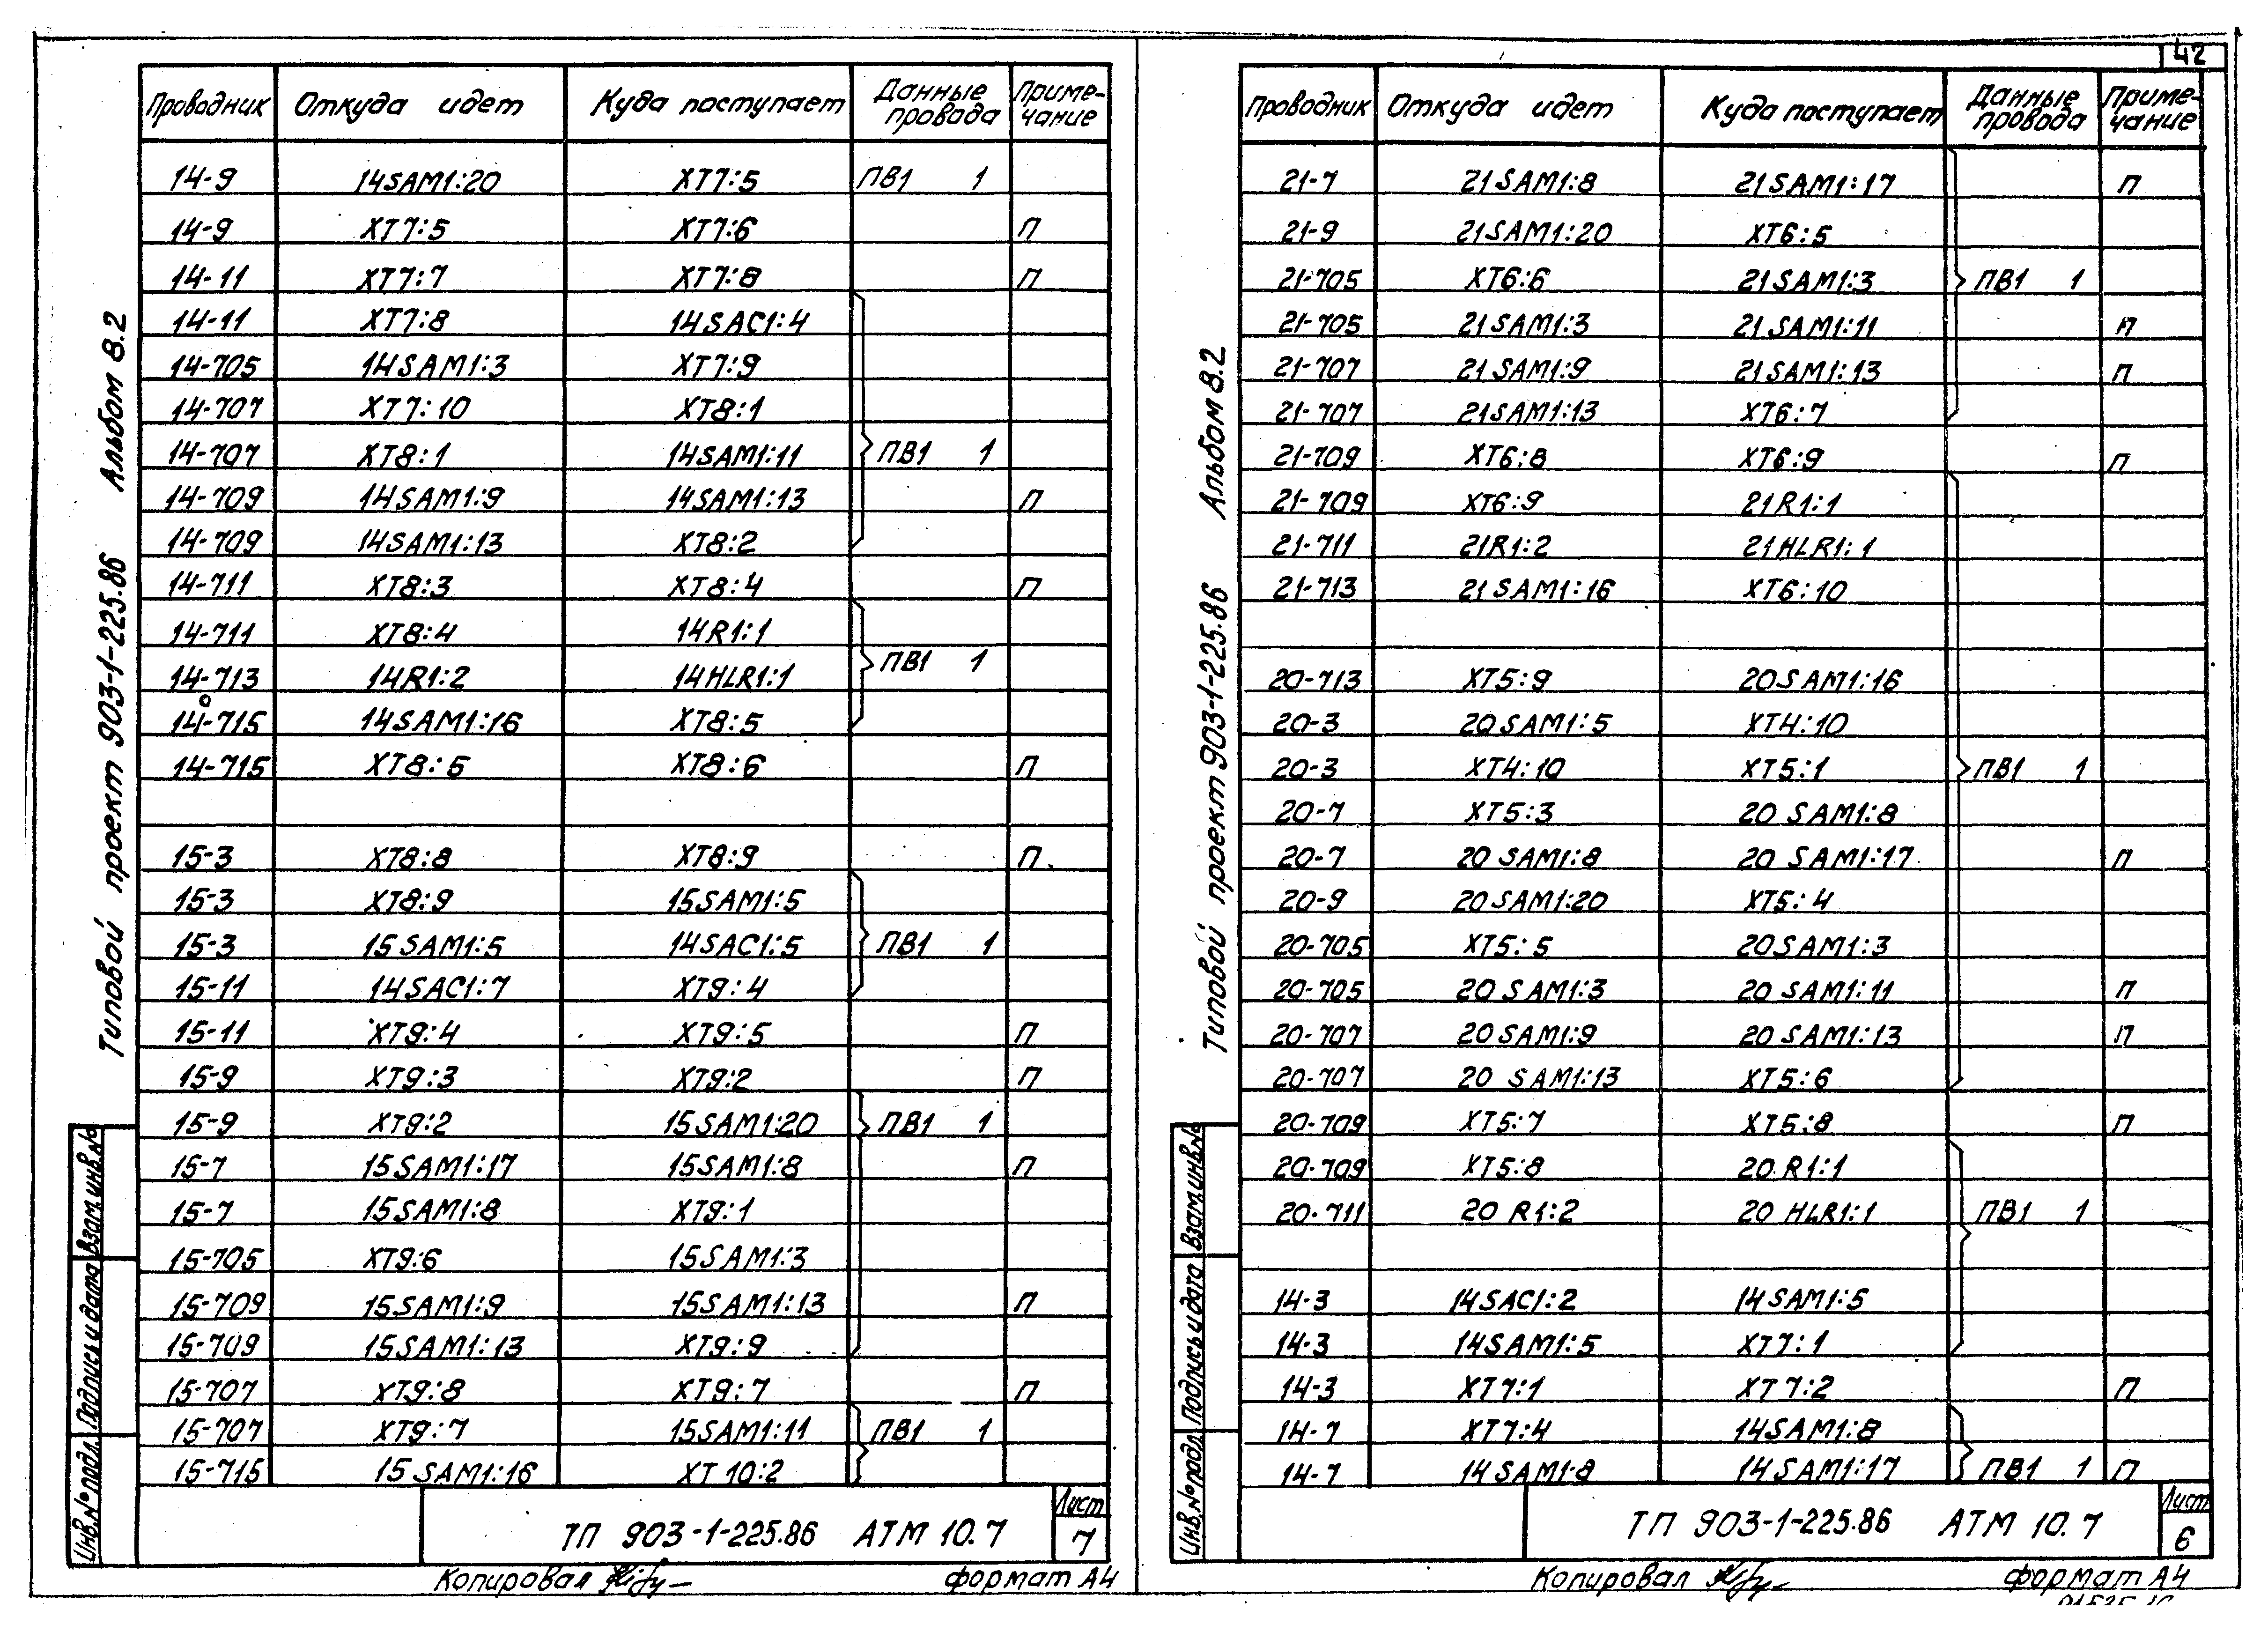 42
Проводник Откуда идет Куда поступает Данные провода Приме-чание
14-9 14SAM1:20 XT7:5 ПВ1 1
14-9 XT7:5 XT7:6 П
14-11 XT7:7 XT7:8 П
14-11 XT7:8 14SAC1:4
14-705 14SAM1:3 XT7:9
14-707 XT7:10 XT8:1
14-707 XT8:1 14SAM1:11 ПВ1 1
14-709 14SAM1:9 14SAM1:13 П
14-709 14SAM1:13 XT8:2
14-711 XT8:3 XT8:4 П
14-711 XT8:4 14R1:1
14-713 14R1:2 14HLR1:1 ПВ1 1
14-715 14SAM1:16 XT8:5
14-715 XT8:5 XT8:6 П
15-3 XT8:8 XT8:9 П
15-3 XT8:9 15SAM1:5
15-3 15SAM1:5 14SAC1:5 ПВ1 1
15-11 14SAC1:7 XT9:4
15-11 XT9:4 XT9:5 П
15-9 XT9:3 XT9:2 П
15-9 XT9:2 15SAM1:20 ПВ1 1
15-7 15SAM1:17 15SAM1:8 П
15-7 15SAM1:8 XT9:1
15-705 XT9:6 15SAM1:3
15-709 15SAM1:9 15SAM1:13 П
15-709 15SAM1:13 XT9:9
15-707 XT9:8 XT9:7 П
15-707 XT9:7 15SAM1:11 ПВ1 1
15-715 15SAM1:16 XT10:2
ТП 903-1-225.86 АТМ 10.7
Лист
7
Копировал
формат А4
Типовой проект 903-1-225.86 Альбом 8.2
Инв.№ подл. Подпись и дата Взам.инв.№
Проводник Откуда идет Куда поступает Данные провода Приме-чание
21-7 21SAM1:8 21SAM1:17 П
21-9 21SAM1:20 XT6:5
21-705 XT6:6 21SAM1:3 ПВ1 1
21-705 21SAM1:3 21SAM1:11 П
21-707 21SAM1:9 21SAM1:13 П
21-707 21SAM1:13 XT6:7
21-709 XT6:8 XT6:9 П
21-709 XT6:9 21R1:1
21-711 21R1:2 21HLR1:1
21-713 21SAM1:16 XT6:10
20-713 XT5:9 20SAM1:16
20-3 20SAM1:5 XT4:10
20-3 XT4:10 XT5:1 ПВ1 1
20-7 XT5:3 20 SAM1:8
20-7 20 SAM1:8 20 SAM1:17 П
20-9 20SAM1:20 XT5:4
20-705 XT5:5 20SAM1:3
20-705 20 SAM1:3 20 SAM1:11 П
20-707 20 SAM1:9 20 SAM1:13 П
20-707 20 SAM1:13 XT5:6
20-709 XT5:7 XT5:8 П
20-709 XT5:8 20 R1:1
20-711 20 R1:2 20 HLR1:1 ПВ1 1
14-3 14SAC1:2 14SAM1:5
14-3 14SAM1:5 XT7:1
14-3 XT7:1 XT7:2 П
14-7 XT7:4 14SAM1:8
14-7 14SAM1-8 14SAM1:17 ПВ1 1 П
ТП 903-1-225.86 АТМ 10.7
Лист
6
Копировал
формат А4
Типовой проект 903-1-225.86 Альбом 8.2
Инв.№ подл. Подпись и дата Взам.инв.№